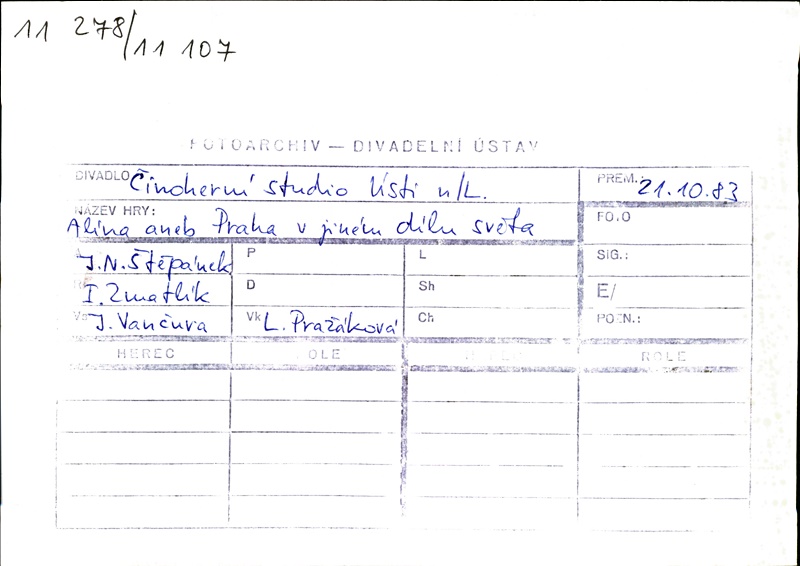 11 278/11 107
FOTOARCHIV — DIVADELNÍ ÚSTAV
DIVADLO Činoherní studio Ústi n/L.
PREM.: 21.10.83
NÁZEV HRY:
Alina aneb Praha v jiném dílu světa
FO.O
J.N.Štěpánek
P
L
SIG.:
I. Zmatlík
D
Sh
E/
J. Vančura
Vk L. Pražáková
Ch
POZN.:
HEREC
ROLE